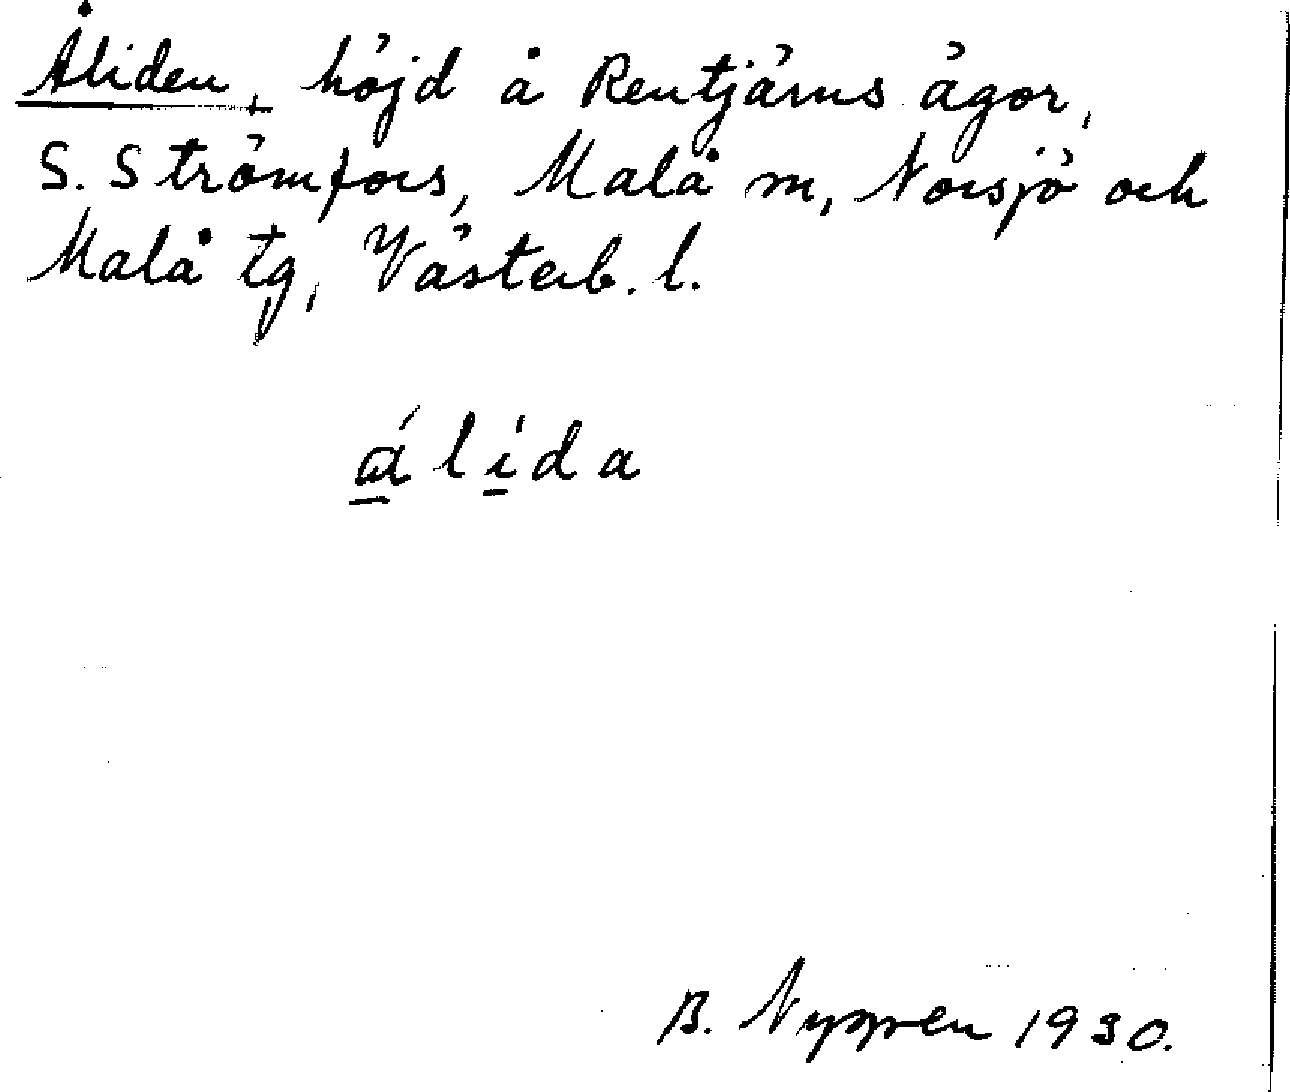 Åliden, höjd å Rentjärns ägor,
S. Strömfors, Malå m, Norsjö och
Malå tg, Västerb. l.
ɑ̠́lí̠da
B. Nygren 1930.